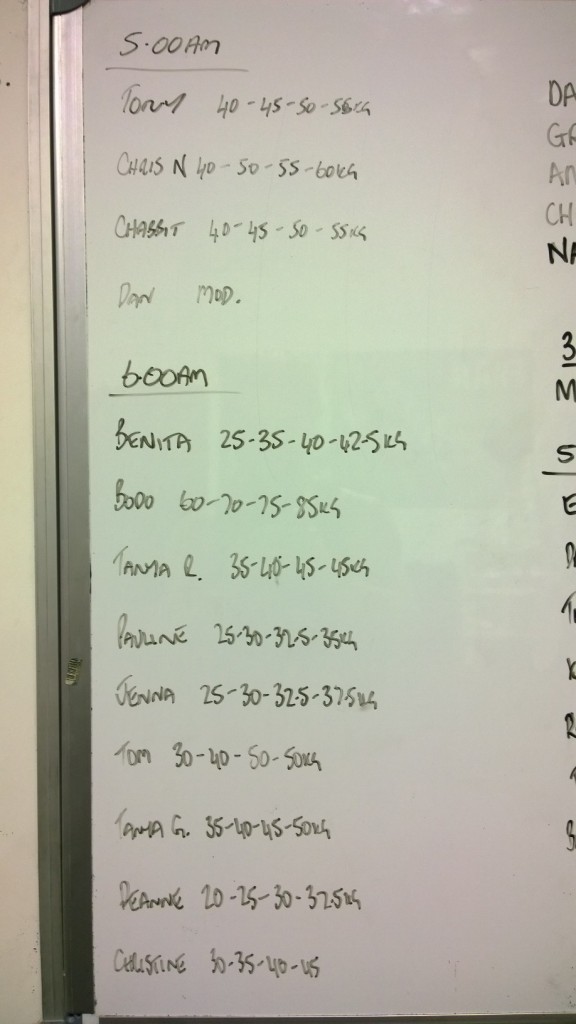 5:00AM
TONY 40-45-50-55KG
CHRIS N 40-50-55-60KG
CHABBIT 40-45-50-55KG
DAN MOD.
6:00AM
BENITA 25-35-40-42.5KG
BODO 60-70-75-85KG
TANYA R. 35-40-45-45KG
PAULINE 25-30-32.5-35KG
JENNA 25-30-32.5-37.5KG
TOM 30-40-50-50KG
TANYA G. 35-40-45-50KG
DEANNE 20-25-30-32.5KG
CHRISTINE 30-35-40-45
DA
GR
AN
CH
NA
3
M
5
E
D
T
K
R
T
B